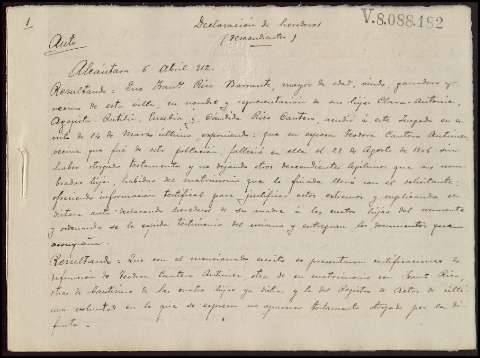 1
Declaración de herederos
V.8.088.182
(descendientes)
Auto
Alcántara 6 Abril 912.
Resultando: Que Sant Rico Barrant, mayor de edad, viudo, ganadero y
vecino de esta villa, en nombre y representación de sus hijas Clara Antonia,
Agapita Eusebia y Cándida Rico Cantero, acudió a este Juzgado en es-
crito de 14 de Marzo último exponiendo: que su esposa Teodora Cantero
vecina que fué de esta población, falleció en ella el 22 de Agosto de sin
haber otorgado testamento y no dejando otros descendientes legítimos que sus nom-
bradas hijas, habidas del matrimonio que la finada llevó con el solicitante:
ofreciendo información testifical para justificar estos extremos y suplicando se
dictara auto declarando herederos de su madre a las cuatro hijas del
y ordenando se le expida testimonio del mismo y entreguen los documentos que
acompaña.
Resultando: Que con el mencionado escrito se presentaron certificaciones de
defunción de Teodora Cantero otra de su matrimonio con Sant Rico,
otras de bautismo de las cuatro hijas ya dichas y la del Registro de Actos de últi-
ma voluntad en la que se expresa no aparecer testamento otorgado por la di-
funta.